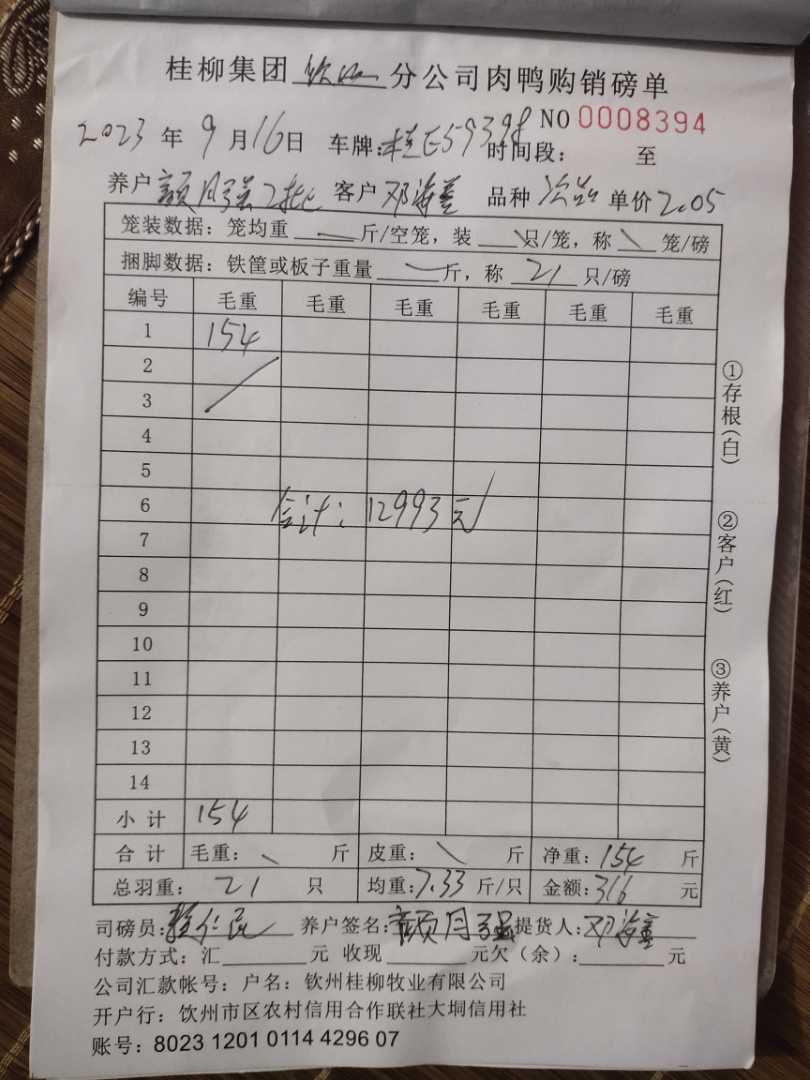 桂柳集团 钦州 分公司肉鸭购销磅单
NO 0008394
2023 年 9 月 16 日 车牌: 桂E59398 时间段: 至
养户 颜月强2批 客户 邓海 品种 次品 单价 2.05
笼装数据: 笼均重 斤/空笼, 装 只/笼, 称 笼/磅
捆脚数据: 铁筐或板子重量 斤, 称 21 只/磅
编号 毛重 毛重 毛重 毛重 毛重 毛重
1 154
2
3
4
5
6 合计: 12993元
7
8
9
10
11
12
13
14
小 计 154
合 计 毛重: 斤 皮重: 斤 净重: 154 斤
总羽重: 21 只 均重: 7.33 斤/只 金额: 316 元
①存根(白)
②客户(红)
③养户(黄)
司磅员: 养户签名: 颜月强 提货人: 邓海
付款方式: 汇 元 收现 元欠(余): 元
公司汇款帐号: 户名: 钦州桂柳牧业有限公司
开户行: 钦州市区农村信用合作联社大垌信用社
账号: 8023 1201 0114 4296 07